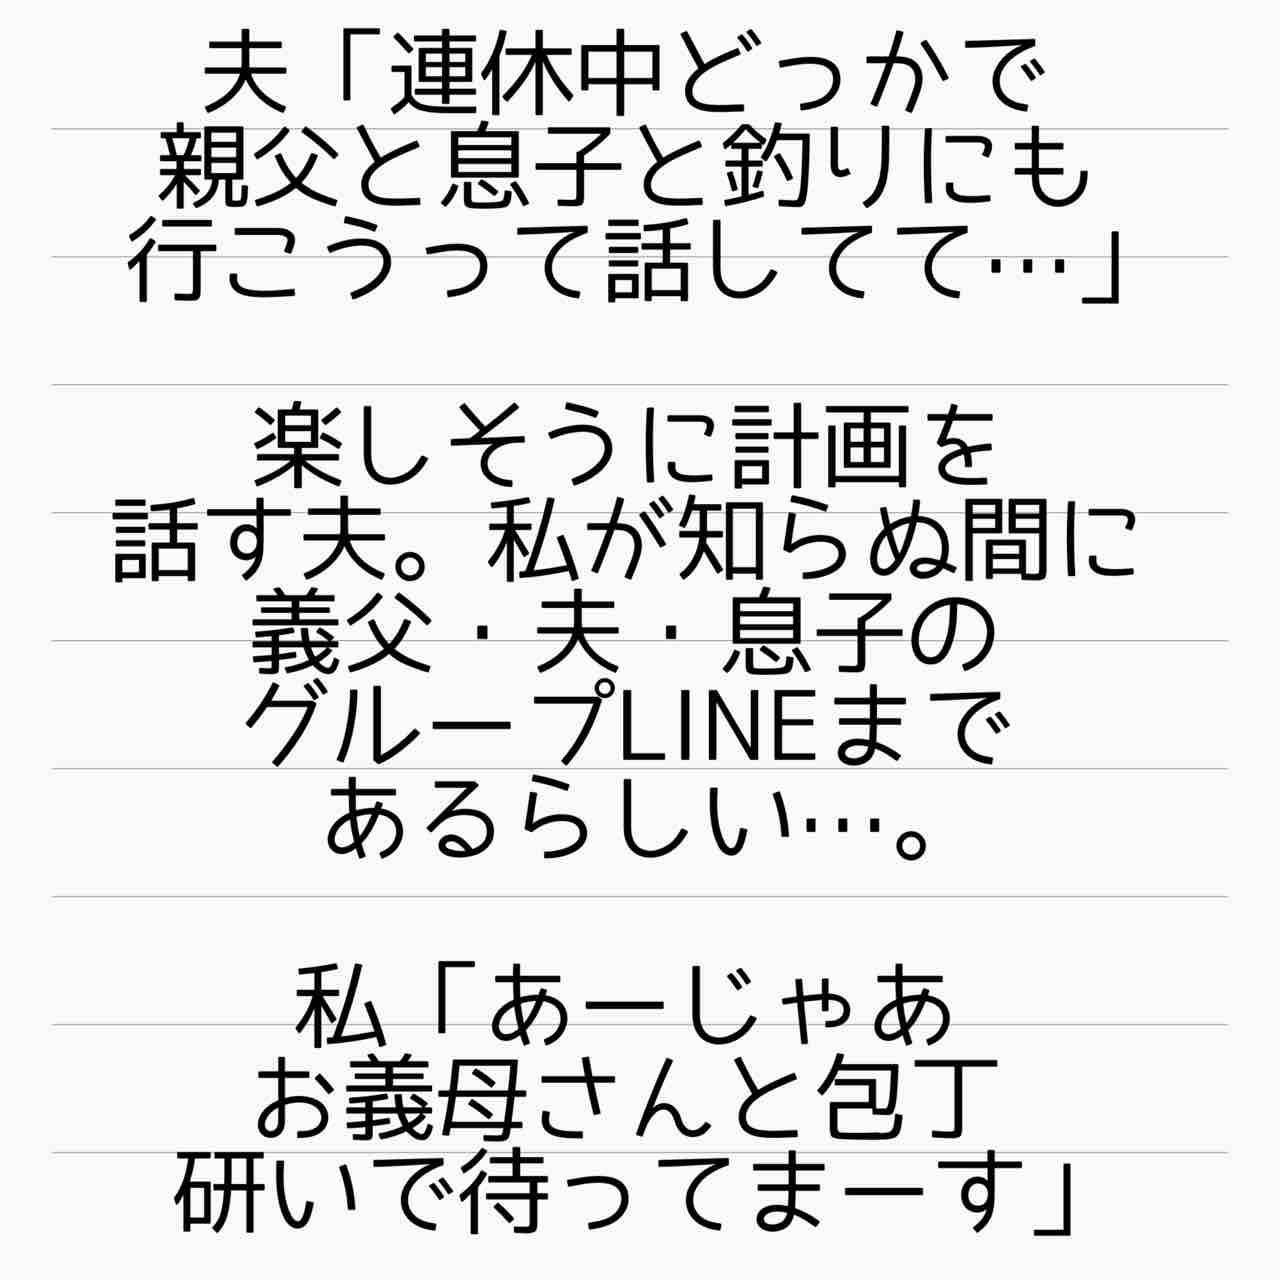 夫「連休中どっかで
親父と息子と釣りにも
行こうって話してて…」
楽しそうに計画を
話す夫。私が知らぬ間に
義父・夫・息子の
グループLINEまで
あるらしい…。
私「あーじゃあ
お義母さんと包丁
研いで待ってまーす」